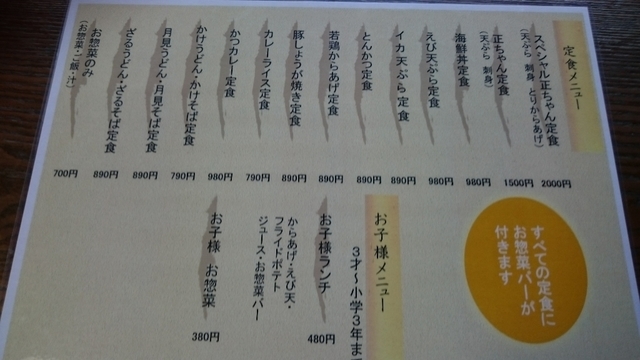 定食メニュー
スペシャル正ちゃん定食
(天ぷら 刺身 とりからあげ)
2000円
正ちゃん定食
(天ぷら 刺身)
1500円
海鮮丼定食
980円
えび天ぷら定食
980円
イカ天ぷら定食
890円
とんかつ定食
890円
若鶏からあげ定食
890円
豚しょうが焼き定食
890円
カレーライス定食
790円
かつカレー定食
980円
かけうどん・かけそば定食
790円
月見うどん・月見そば定食
890円
ざるうどん・ざるそば定食
890円
お惣菜のみ
(お惣菜・ご飯・汁)
700円
すべての定食に
お惣菜バーが
付きます
お子様メニュー
3才~小学3年まで
お子様ランチ
480円
からあげ・えび天・
フライドポテト
ジュース・お惣菜バー
お子様 お惣菜
380円